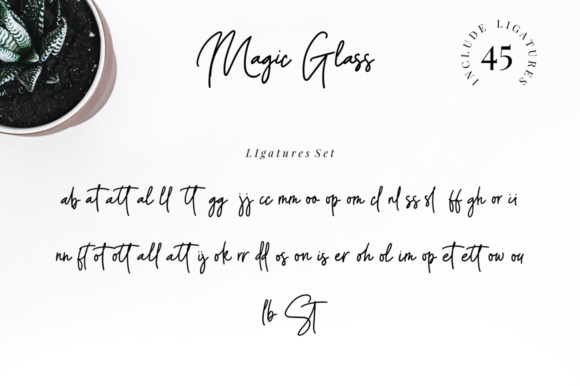 Magic Glass
INCLUDE LIGATURES
45
LIgatures Set
ab at att al ll tt gg jj cc mm oo op om cl nl ss sl ff gh or ii
nn ft ot ott all att ij ok rr dd os on is er oh ol im op et ett ow ou
lb St